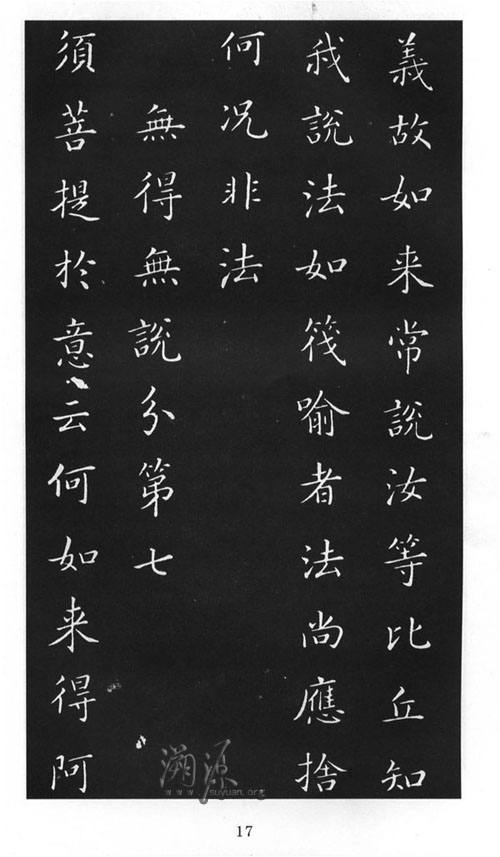 義故如来常說汝等比丘知
我說法如筏喻者法尚應捨
何况非法
無得無說分第七
須菩提於意云何如来得阿
溯源
www.suyuan.org
17